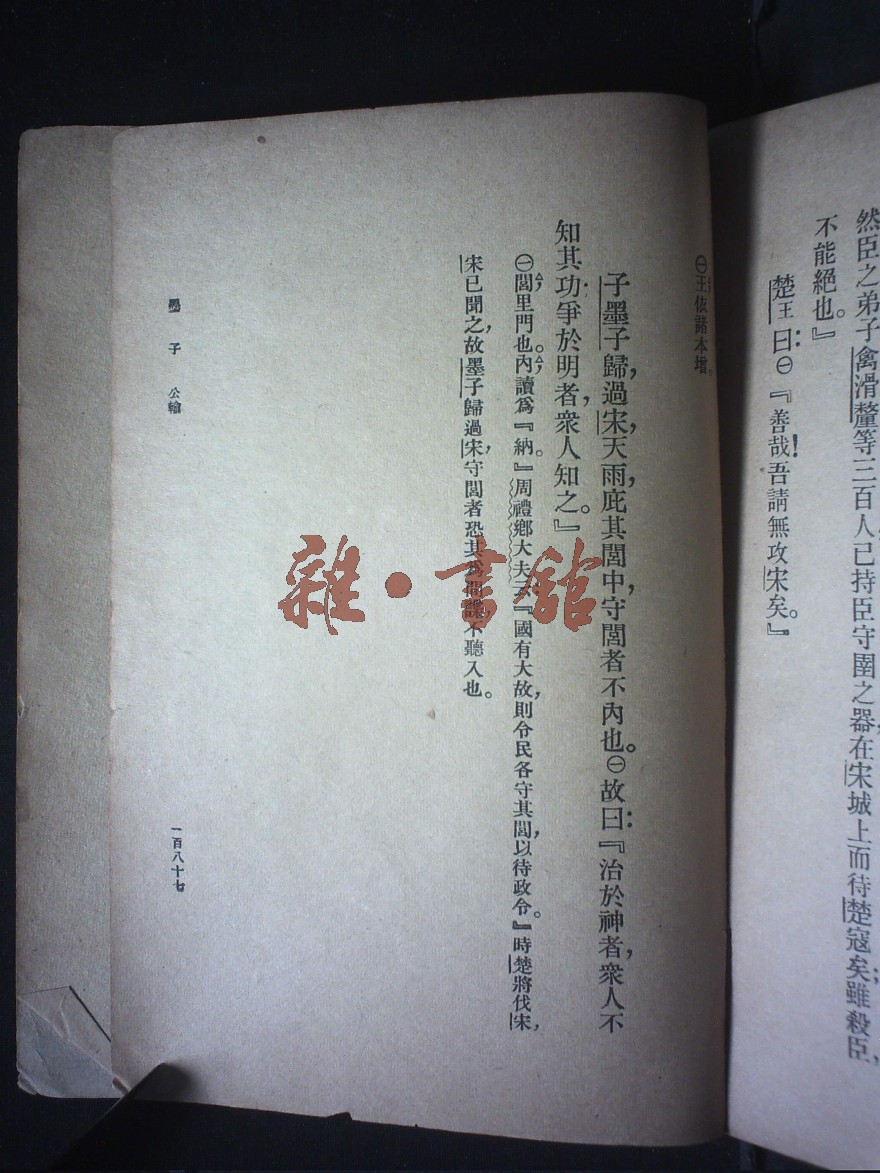 然臣之弟子禽滑釐等三百人,已持臣守圉之器,在宋城上而待楚寇矣;雖殺臣,
不能絕也。』
楚王曰:㊀『善哉!吾請無攻宋矣。』
㊀王依諸本增。
子墨子歸,過宋,天雨,庇其閭中,守閭者不內也。㊀故曰:『治於神者,衆人不
知其功;爭於明者,衆人知之。』
㊀閭,里門也。內,讀爲『納。』周禮鄉大夫云:『國有大故,則令民各守其閭,以待政令。』時楚將伐宋,
宋已聞之,故墨子歸過宋,守閭者恐其爲間諜,不聽入也。
墨子 公輸
一百八十七
雜·書館